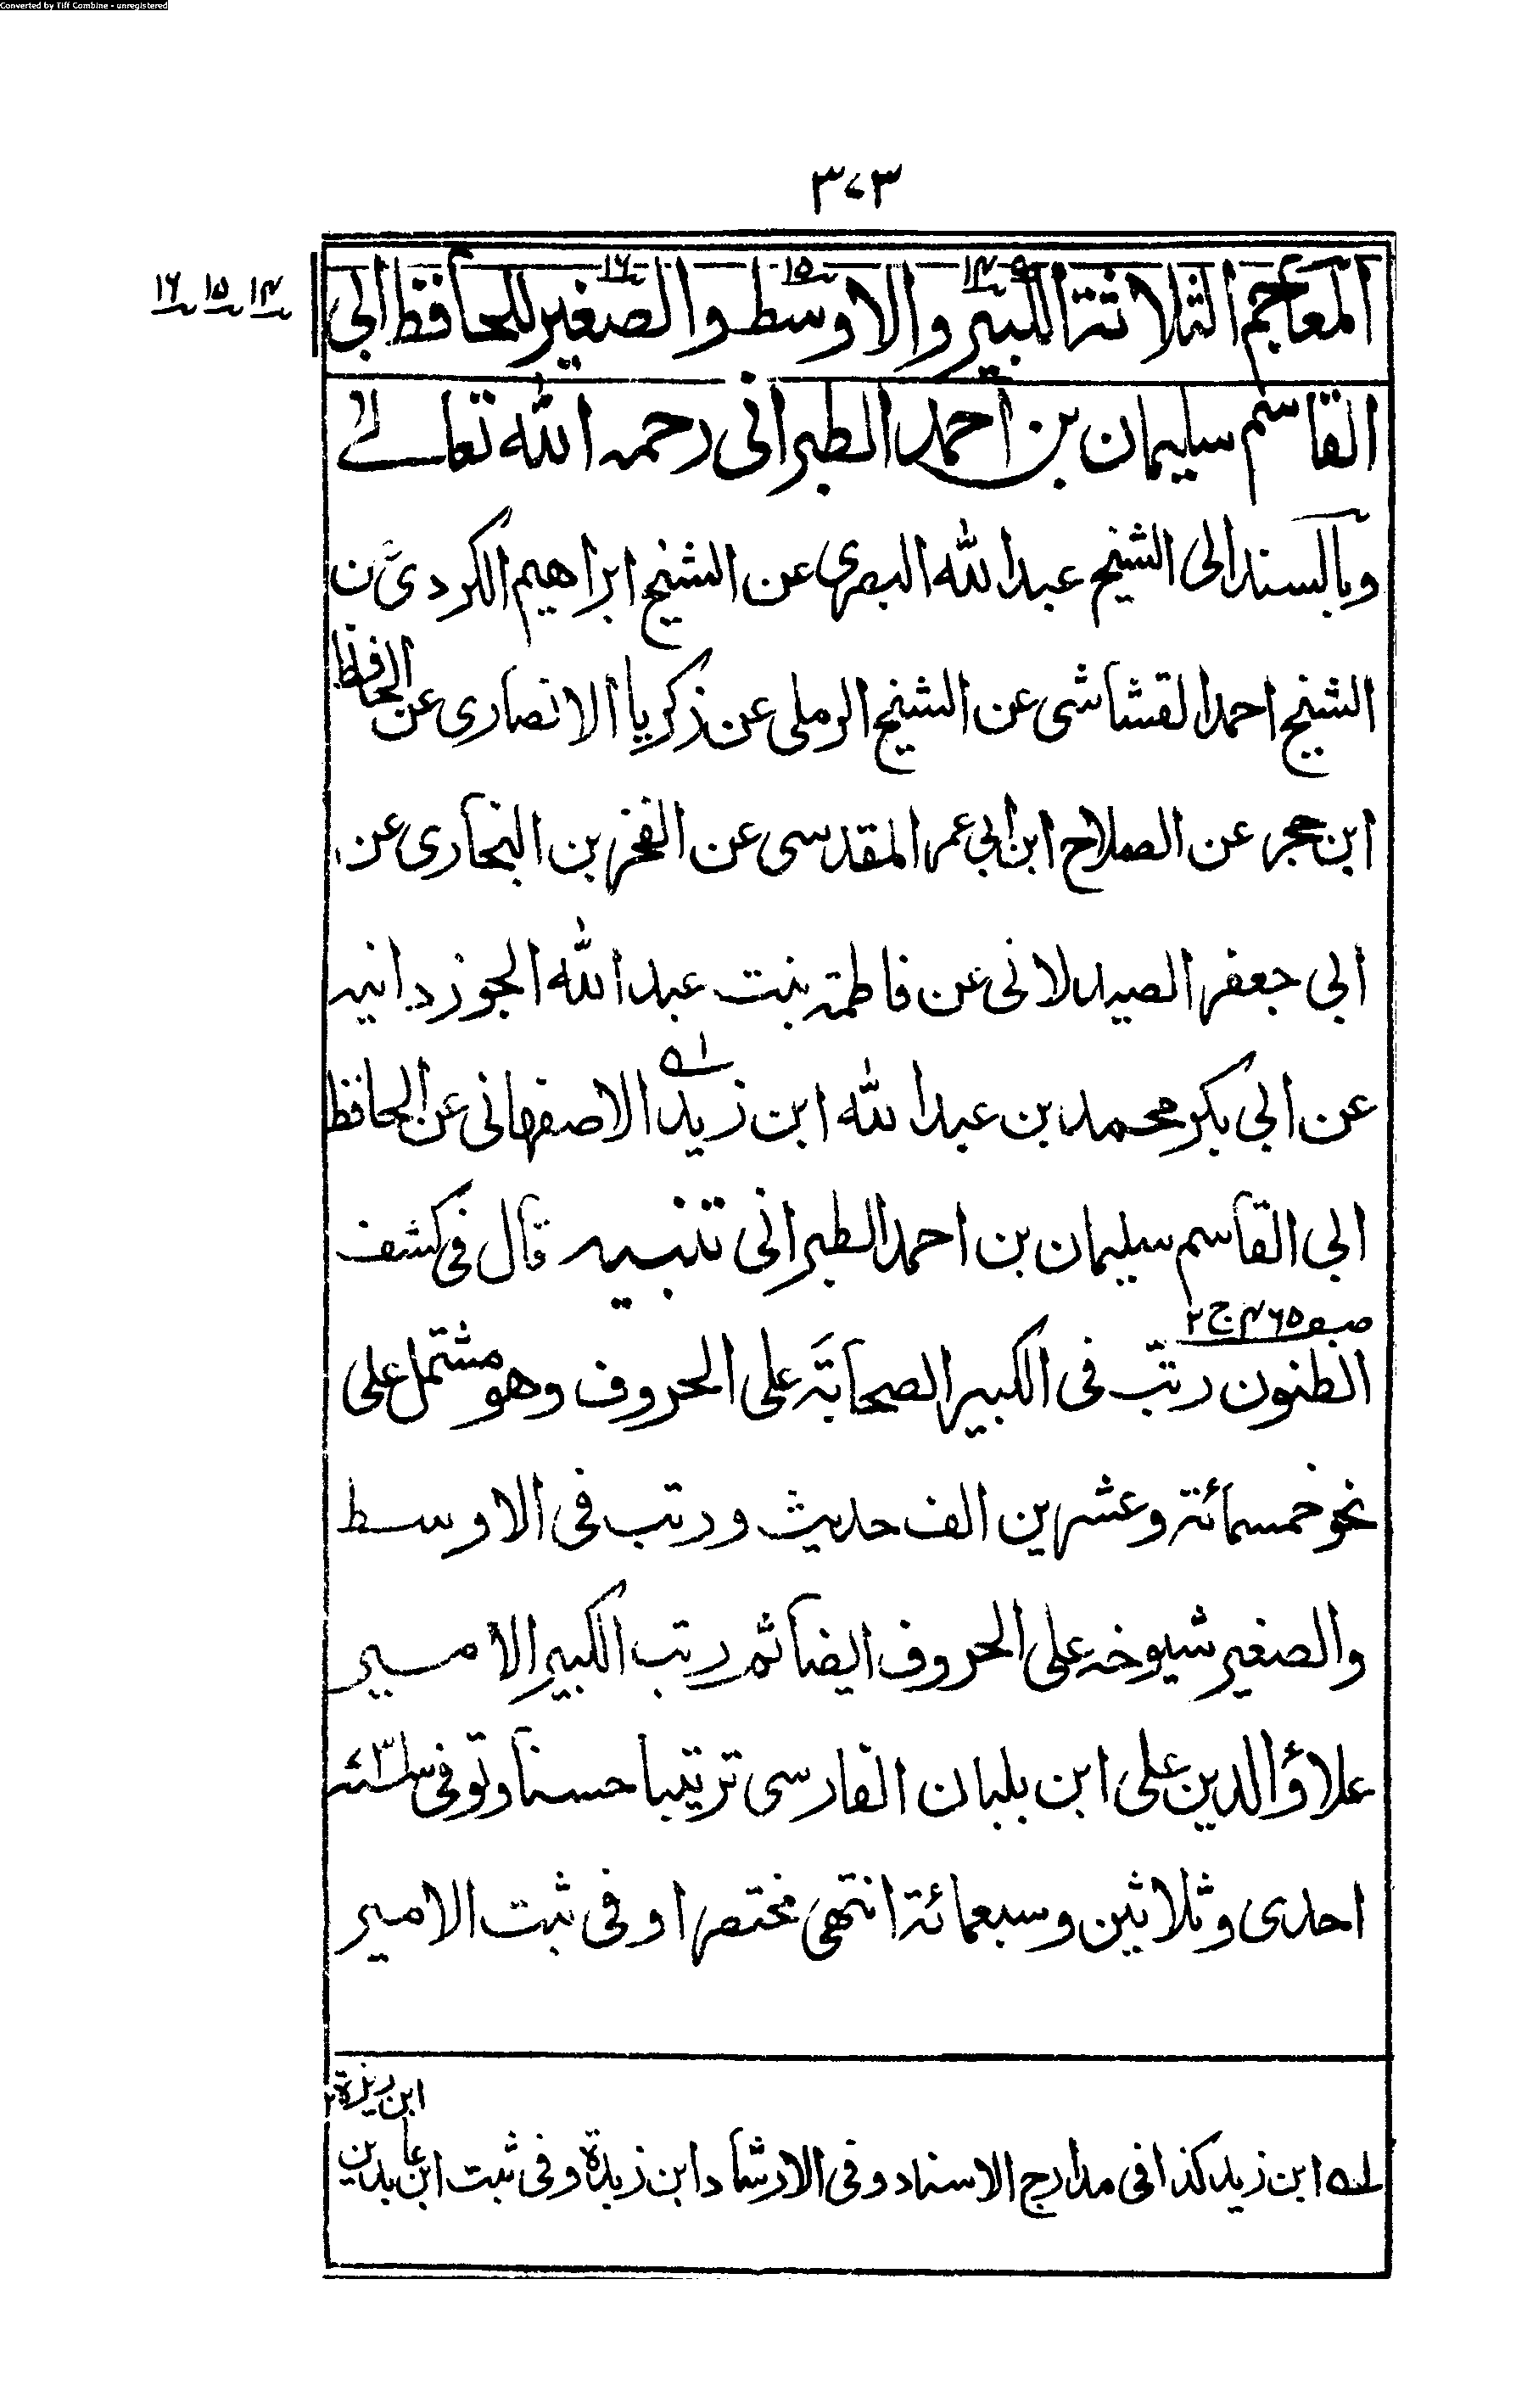 Converted by Tiff Combine - unregistered
٣٧٣
١٤ ١٥ ١٦
المعاجم الثلاثة الكبير والاوسط والصغير للحافظ ابي
١٤ ١٥ ١٦
القاسم سليمان بن احمد الطبراني رحمه الله تعالى
وبالسند الى الشيخ عبد الله البصري عن الشيخ ابراهيم الكردي عن
الشيخ احمد القشاشي عن الشيخ الرملي عن زكريا الانصاري عن الحافظ
ابن حجر عن الصلاح ابن ابي عمر المقدسي عن الفخر بن البخاري عن
ابي جعفر الصيدلاني عن فاطمة بنت عبد الله الجوزدانيه
عن ابي بكر محمد بن عبد الله ابن زيد الاصفهاني عن الحافظ
ابي القاسم سليمان بن احمد الطبراني تنبيه قال في كشف
صـ ٤٦٥ ج ٢
الظنون رتّب في الكبير الصحابة على الحروف وهو مشتمل على
نحو خمسمائة وعشرين الف حديث ورتب في الاوسط
والصغير شيوخه على الحروف ايضا ثم رتب الكبير الامير
علاؤ الدين على ابن بلبان الفارسي ترتيبا حسنا وتوفي ٧٣١
احدى وثلاثين وسبعمائة انتهى مختصرا وفي ثبت الامير
له ابن زيد كذا في مدارج الاسناد وفي الارشاد ابن زيدة وفي ثبت ابن عابدين
ابن ريذة